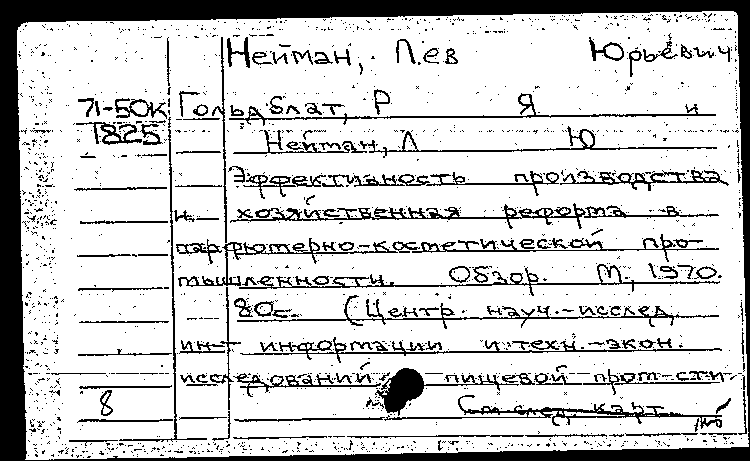 Нейман, Лев Юрьевич
71-50К Гольдблат, Р Я и
1825 Нейман, Л Ю
Эффективность производства
и хозяйственная реформа в
парфюмерно-косметической про-
мышленности. Обзор. М., 1970.
80с. (Центр. науч.-исслед.
ин-т информации и техн.-экон.
исследований пищевой пром-сти
8 См след. карт.